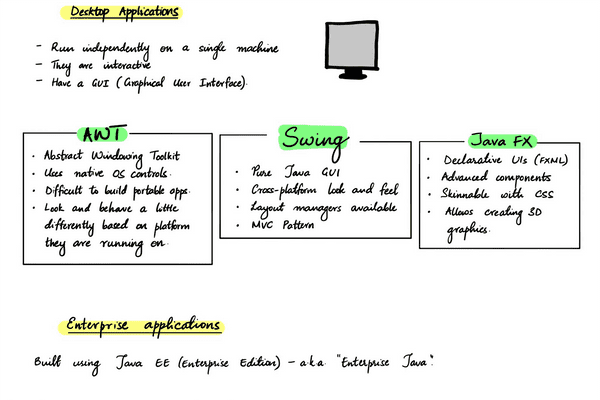 Desktop Applications
- Run independently on a single machine
- They are interactive
- Have a GUI (Graphical User Interface).
AWT
• Abstract Windowing Toolkit
• Uses native OS controls.
• Difficult to build portable apps.
• Look and behave a little
differently based on platform
they are running on.
Swing
• Pure Java GUI
• Cross-platform look and feel
• Layout managers available
• MVC Pattern
Java FX
• Declarative UIs (FXML)
• Advanced components
• Skinnable with CSS
• Allows creating 3D
graphics.
Enterprise applications
Built using Java EE (Enterprise Edition) – a.k.a. "Enterprise Java".